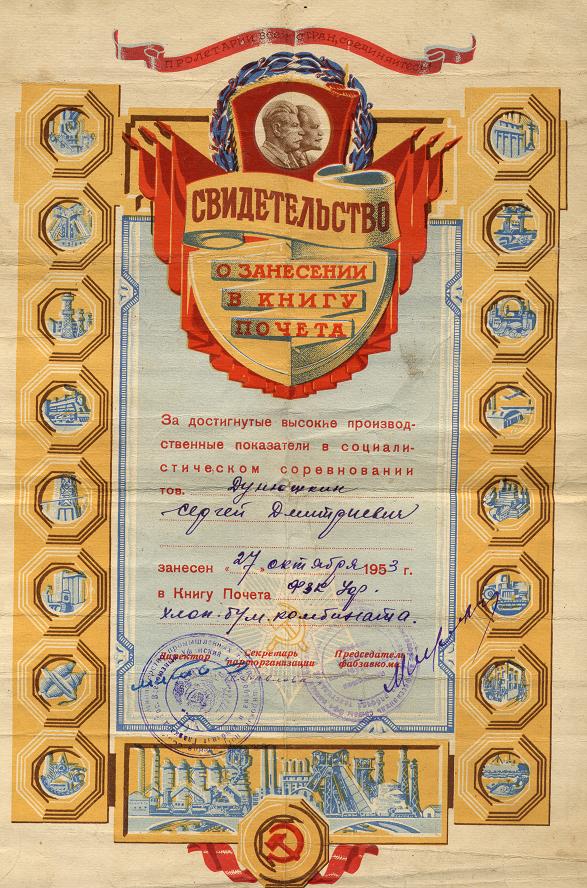 ПРОЛЕТАРИИ ВСЕХ СТРАН, СОЕДИНЯЙТЕСЬ!
СВИДЕТЕЛЬСТВО
О ЗАНЕСЕНИИ
В КНИГУ
ПОЧЕТА
За достигнутые высокие производ-
ственные показатели в социали-
стическом соревновании
тов. Дунюшкин
Сергей Дмитриевич
занесен „27" октября 1953 г.
в Книгу Почета ФЗК Удр.
хлоп. бум. комбината.
Директор Секретарь Председатель
парторганизации фабзавкома